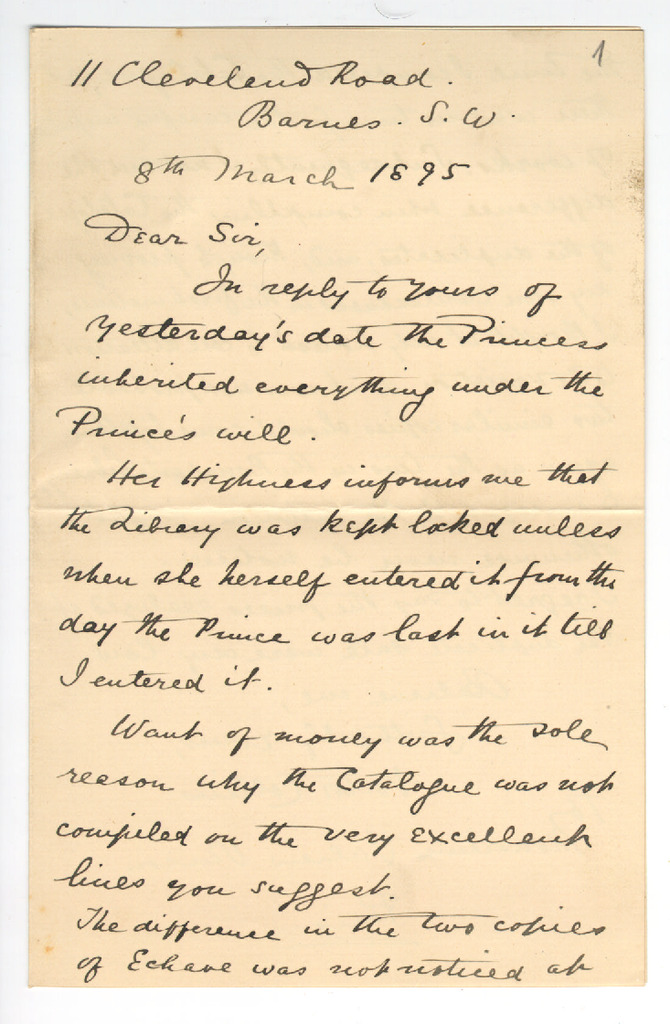 1
11 Cleveland Road.
Barnes. S. W.
8th March 1895
Dear Sir,
In reply to yours of
yesterday's date the Princess
inherited everything under the
Prince's will.
Her Highness informs me that
the Library was kept locked unless
when she herself entered it from the
day the Prince was last in it till
I entered it.
Want of money was the sole
reason why the Catalogue was not
compiled on the very excellent
lines you suggest.
The difference in the two copies
of Echave was not noticed at